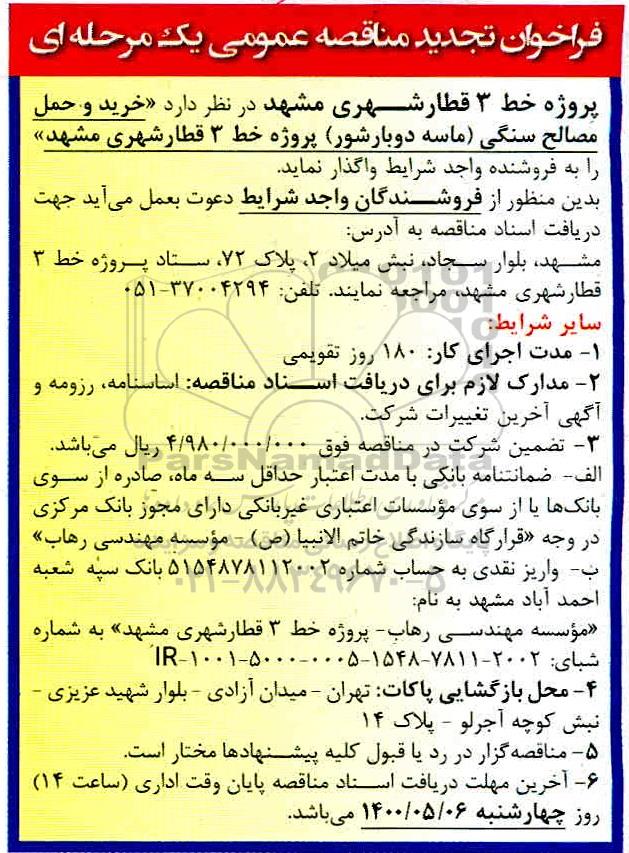 فراخوان تجدید مناقصه عمومی یک مرحله ای
پروژه خط ۳ قطارشهری مشهد در نظر دارد «خرید و حمل
مصالح سنگی (ماسه دوبارشور) پروژه خط ۳ قطارشهری مشهد»
را به فروشنده واجد شرایط واگذار نماید.
بدین منظور از فروشندگان واجد شرایط دعوت بعمل می‌آید جهت
دریافت اسناد مناقصه به آدرس:
مشهد، بلوار سجاد، نبش میلاد ۲، پلاک ۷۲، ستاد پروژه خط ۳
قطارشهری مشهد، مراجعه نمایند. تلفن: ۳۷۰۰۴۲۹۴-۰۵۱
سایر شرایط:
۱- مدت اجرای کار: ۱۸۰ روز تقویمی
۲- مدارک لازم برای دریافت اسناد مناقصه: اساسنامه، رزومه و
آگهی آخرین تغییرات شرکت.
۳- تضمین شرکت در مناقصه فوق ۴/۹۸۰/۰۰۰/۰۰۰ ریال می‌باشد.
الف- ضمانتنامه بانکی با مدت اعتبار حداقل سه ماه، صادره از سوی
بانک‌ها یا از سوی مؤسسات اعتباری غیربانکی دارای مجوز بانک مرکزی
در وجه «قرارگاه سازندگی خاتم الانبیا (ص) - مؤسسه مهندسی رهاب»
ب- واریز نقدی به حساب شماره ۵۱۵۴۸۷۸۱۱۲۰۰۲ بانک سپه شعبه
احمد آباد مشهد به نام:
«مؤسسه مهندسی رهاب- پروژه خط ۳ قطارشهری مشهد» به شماره
شبای: IR-۱۰۰۱-۵۰۰۰-۰۰۰۵-۱۵۴۸-۷۸۱۱-۲۰۰۲
۴- محل بازگشایی پاکات: تهران - میدان آزادی - بلوار شهید عزیزی -
نبش کوچه آجرلو - پلاک ۱۴
۵- مناقصه‌گزار در رد یا قبول کلیه پیشنهادها مختار است.
۶- آخرین مهلت دریافت اسناد مناقصه پایان وقت اداری (ساعت ۱۴)
روز چهارشنبه ۱۴۰۰/۰۵/۰۶ می‌باشد.
ParsNamadData
۰۲۱-۸۸۳۴۹۶۷۰-۵